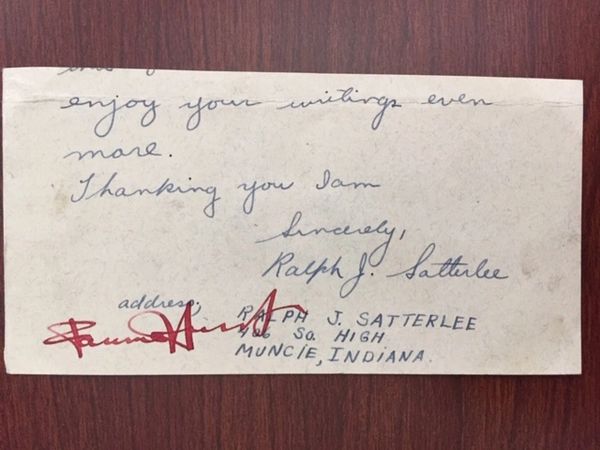 enjoy your writings even
more.
Thanking you I am
Sincerely,
Ralph J. Satterlee
address:
RALPH J. SATTERLEE
So. HIGH
MUNCIE, INDIANA.
Fannie Hurst